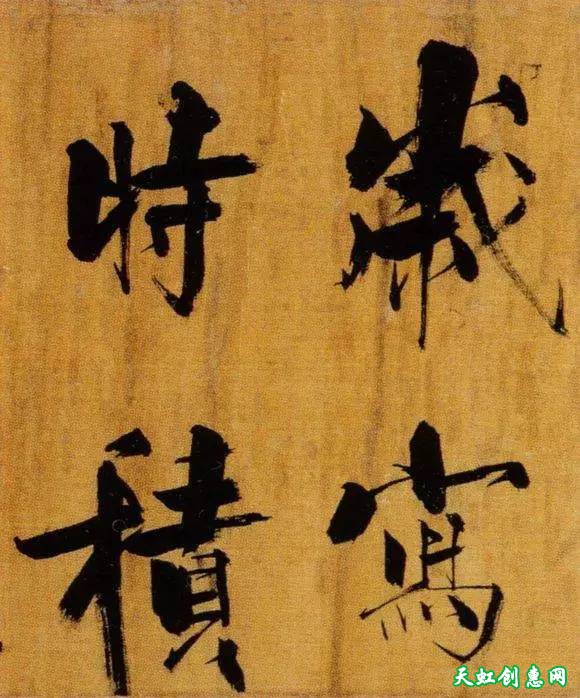 歲寫
時積
天虹创惠网